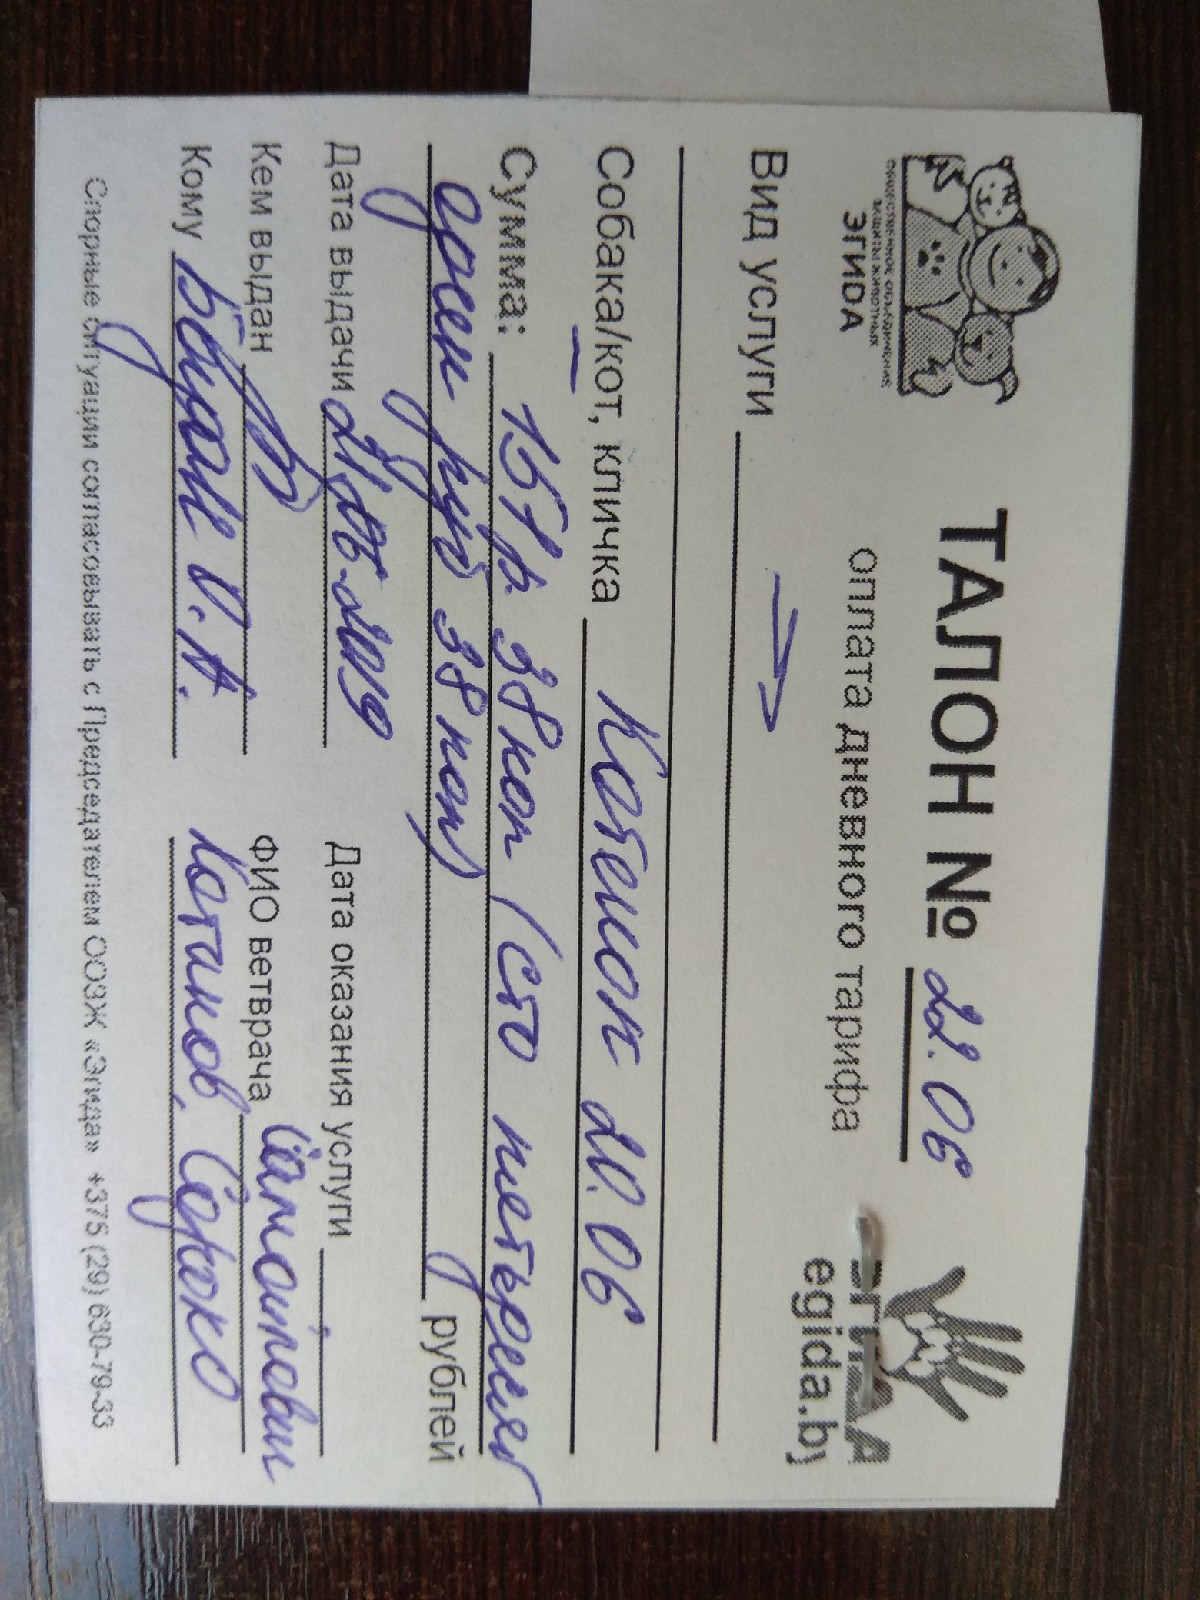 ТАЛОН № 22.06
оплата дневного тарифа
ОБЩЕСТВЕННОЕ ОБЪЕДИНЕНИЕ
ЗАЩИТЫ ЖИВОТНЫХ
ЭГИДА
ЭГИДА
egida.by
Вид услуги
Собака/кот, кличка Котенок 21.06
Сумма: 151р 38коп (сто пятьдесят
один руб 38 коп) рублей
Дата выдачи 21.06.2019 Дата оказания услуги
Кем выдан ФИО ветврача Самойлевич
Кому И.А. Котанов, Сороко
Спорные ситуации согласовывать с Председателем ООЗЖ «Эгида» +375 (29) 630-79-33